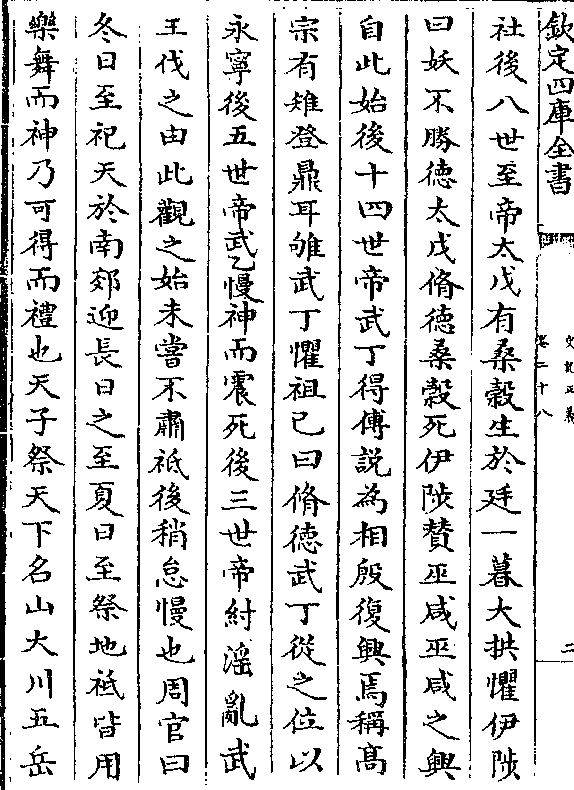 欽定四庫全書
史記正義
卷二十八
二
社後八世至帝太戊有桑榖生於廷一暮大拱懼伊陟
曰妖不勝徳太戊脩徳桑榖死伊陟賛巫咸巫咸之興
自此始後十四世帝武丁得傅説為相殷復興焉稱髙
宗有雉登鼎耳雊武丁懼祖已曰脩徳武丁從之位以
永寧後五世帝武乙慢神而震死後三世帝紂滛亂武
王伐之由此觀之始未嘗不肅祗後稍怠慢也周官曰
冬日至祀天於南郊迎長日之至夏日至祭地祗皆用
樂舞而神乃可得而禮也天子祭天下名山大川五岳